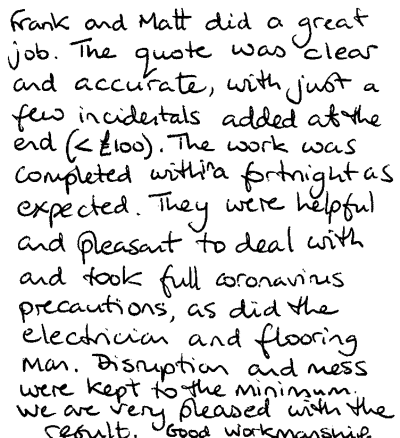 Frank and Matt did a great
job. The quote was clear
and accurate, with just a
few incidentals added at the
end (< £100). The work was
completed within a fortnight as
expected. They were helpful
and pleasant to deal with
and took full coronavirus
precautions, as did the
electrician and flooring
man. Disruption and mess
were kept to the minimum.
We are very pleased with the
result. Good workmanship